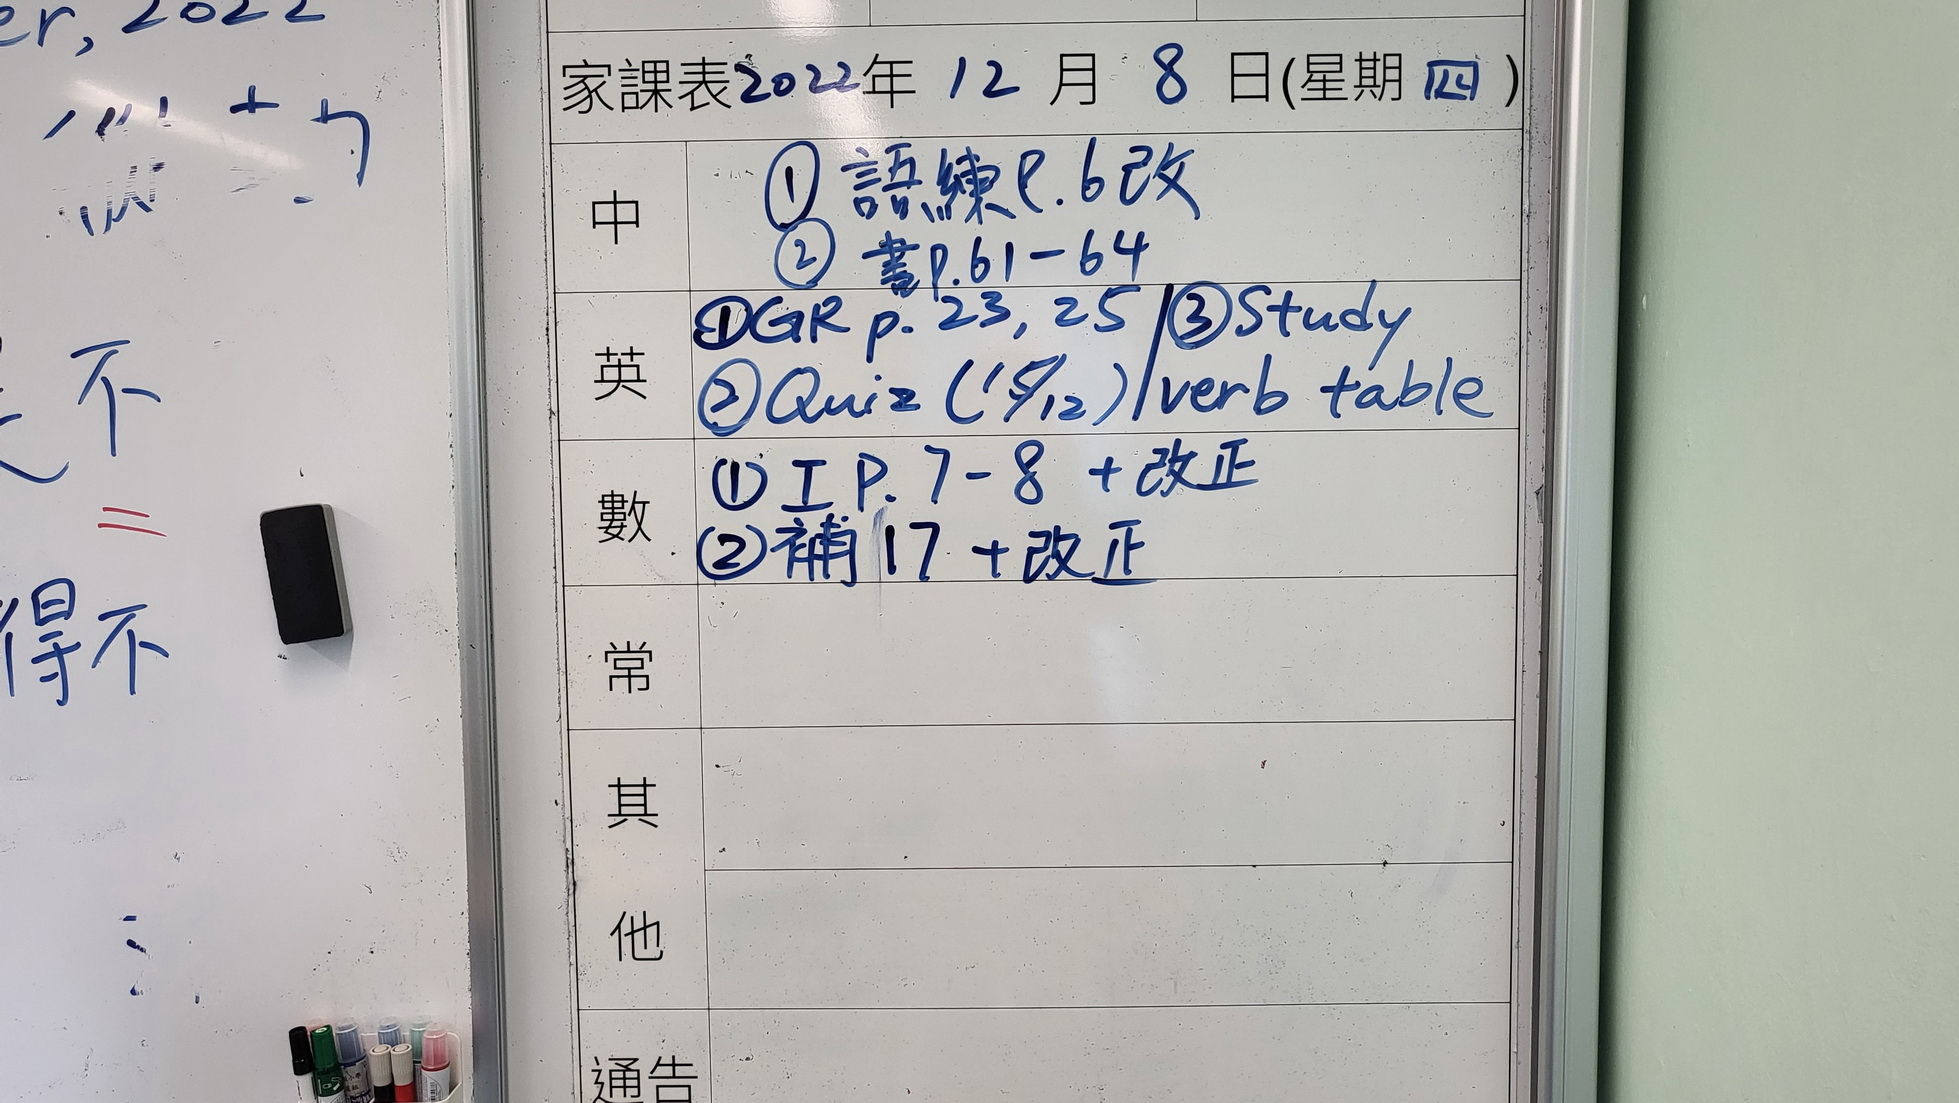 er, 2022
不
得不
家課表2022年 12 月 8 日(星期 四 )
中
① 語練P.6改
② 書p.61-64
英
①GR p. 23, 25 / ③Study
②Quiz (15/12) / verb table
數
① I P. 7-8 + 改正
② 補 17 + 改正
常
其
他
通告